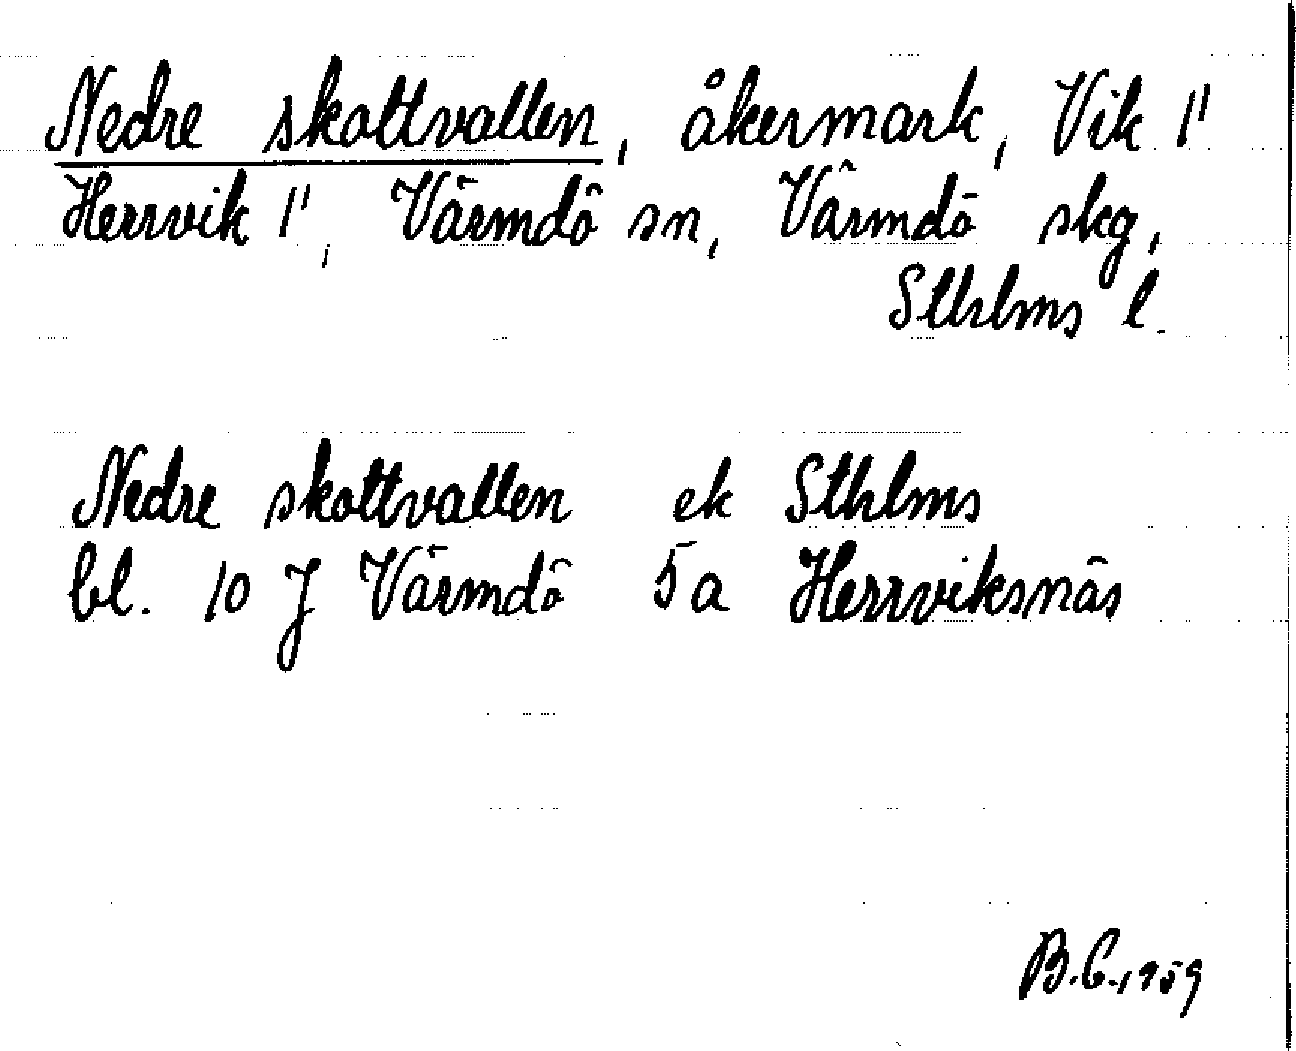 Nedre skottvallen, åkermark, Vik 1¹
Herrvik 1¹, Värmdö sn, Värmdö skg,
Sthlms l.
Nedre skottvallen ek Sthlms
bl. 10 J Värmdö 5a Herrviksnäs
B.C. 1959